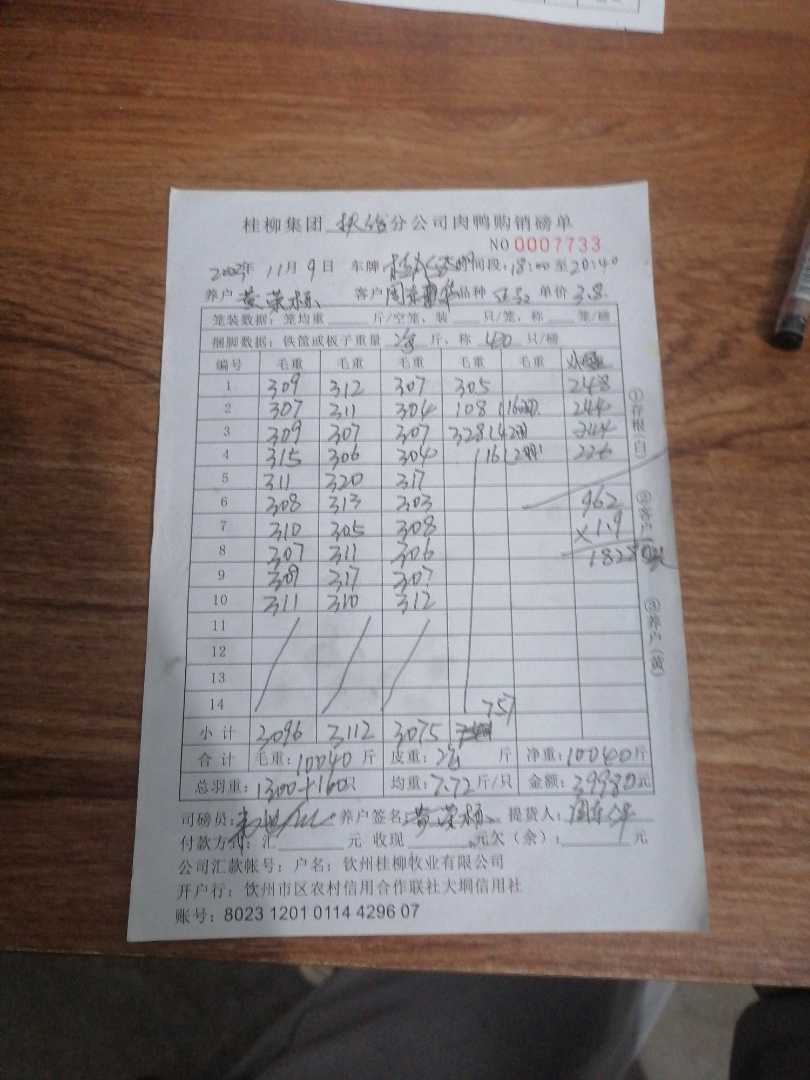 桂柳集团 分公司肉鸭购销磅单
NO 0007733
年 11月 9日 车牌 时间段：18:00至20:40
养户 黄荣标 客户 品种 单价 3.8
笼装数据：笼均重 斤/空笼、装 只/笼，称 笼/磅
捆脚数据：铁筐或板子重量 斤、称 只/磅
编号 毛重 毛重 毛重 毛重 毛重
1 309 312 307 305 248
2 307 311 304 108 244
3 309 307 307 328 244
4 315 306 304 116 226
5 311 320 317
6 308 313 303 962
7 310 305 308 ×1.9
8 307 311 306
9 309 317 307
10 311 310 312
11
12
13
14 757
小计 3096 3112 3075
合计 毛重：10040 斤 皮重： 斤 净重：10040斤
总羽重：1300+160只 均重：7.72斤/只 金额：39980元
司磅员： 养户签名：黄荣标 提货人：
付款方式：汇 元 收现 元欠（余）： 元
公司汇款帐号：户名：钦州桂柳牧业有限公司
开户行：钦州市区农村信用合作联社大垌信用社
账号：8023 1201 0114 4296 07
①存根（白）
②客户
③养户（黄）